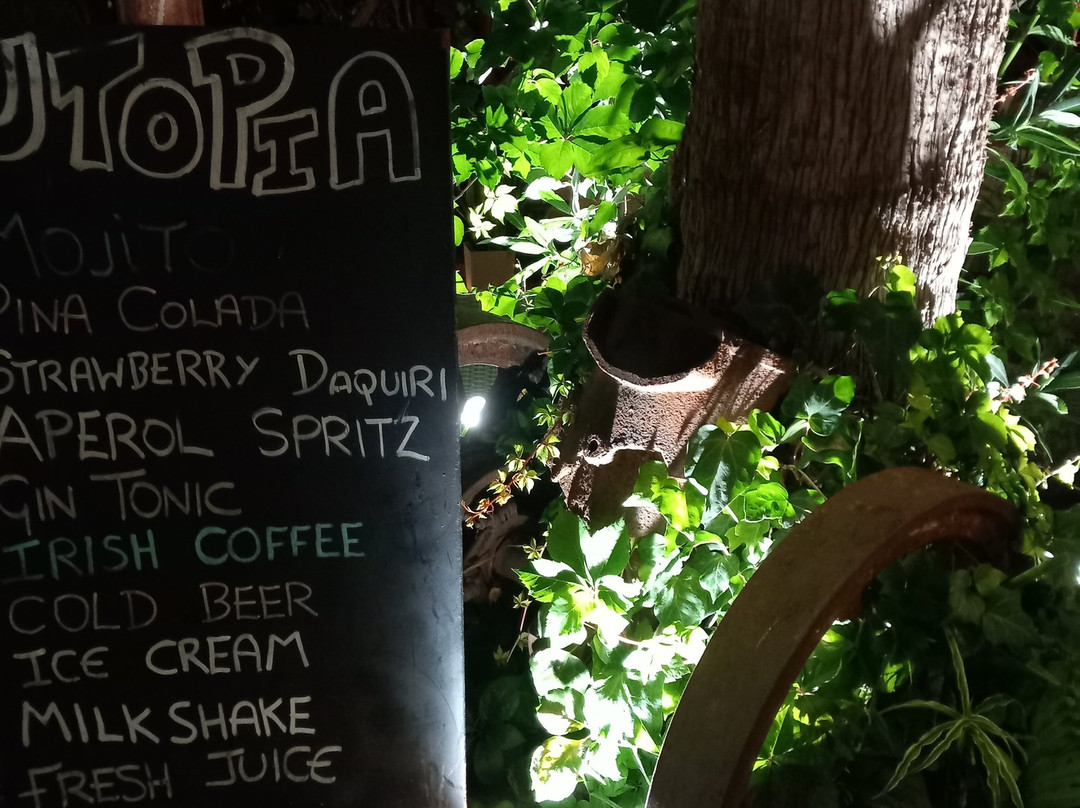 UTOPIA
MOJITO
PINA COLADA
STRAWBERRY DAQUIRI
APEROL SPRITZ
GIN TONIC
IRISH COFFEE
COLD BEER
ICE CREAM
MILKSHAKE
FRESH JUICE